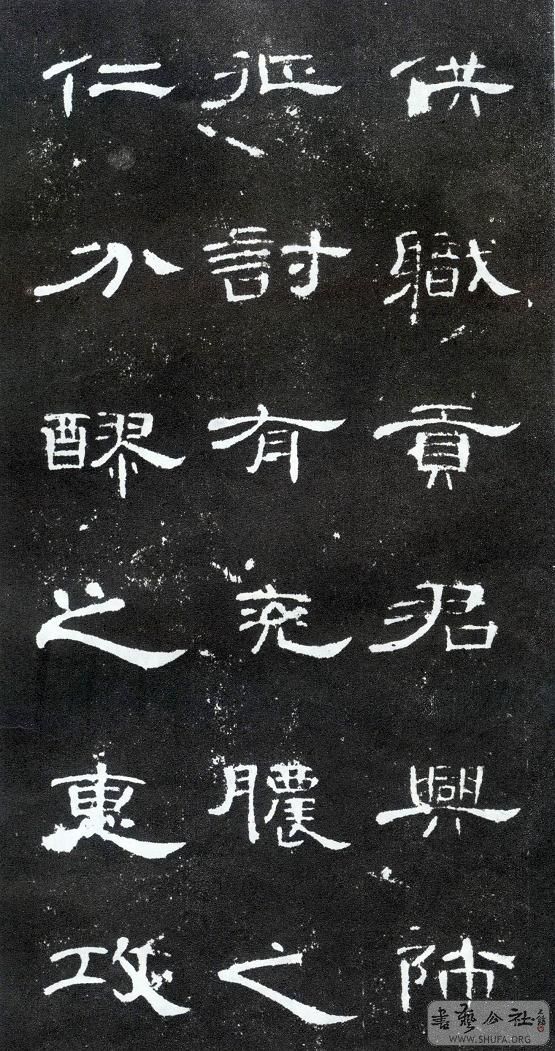 供職貢君興師
征討有兗膿之
仁分醪之惠攻
書藝公社
WWW.SHUFA.ORG